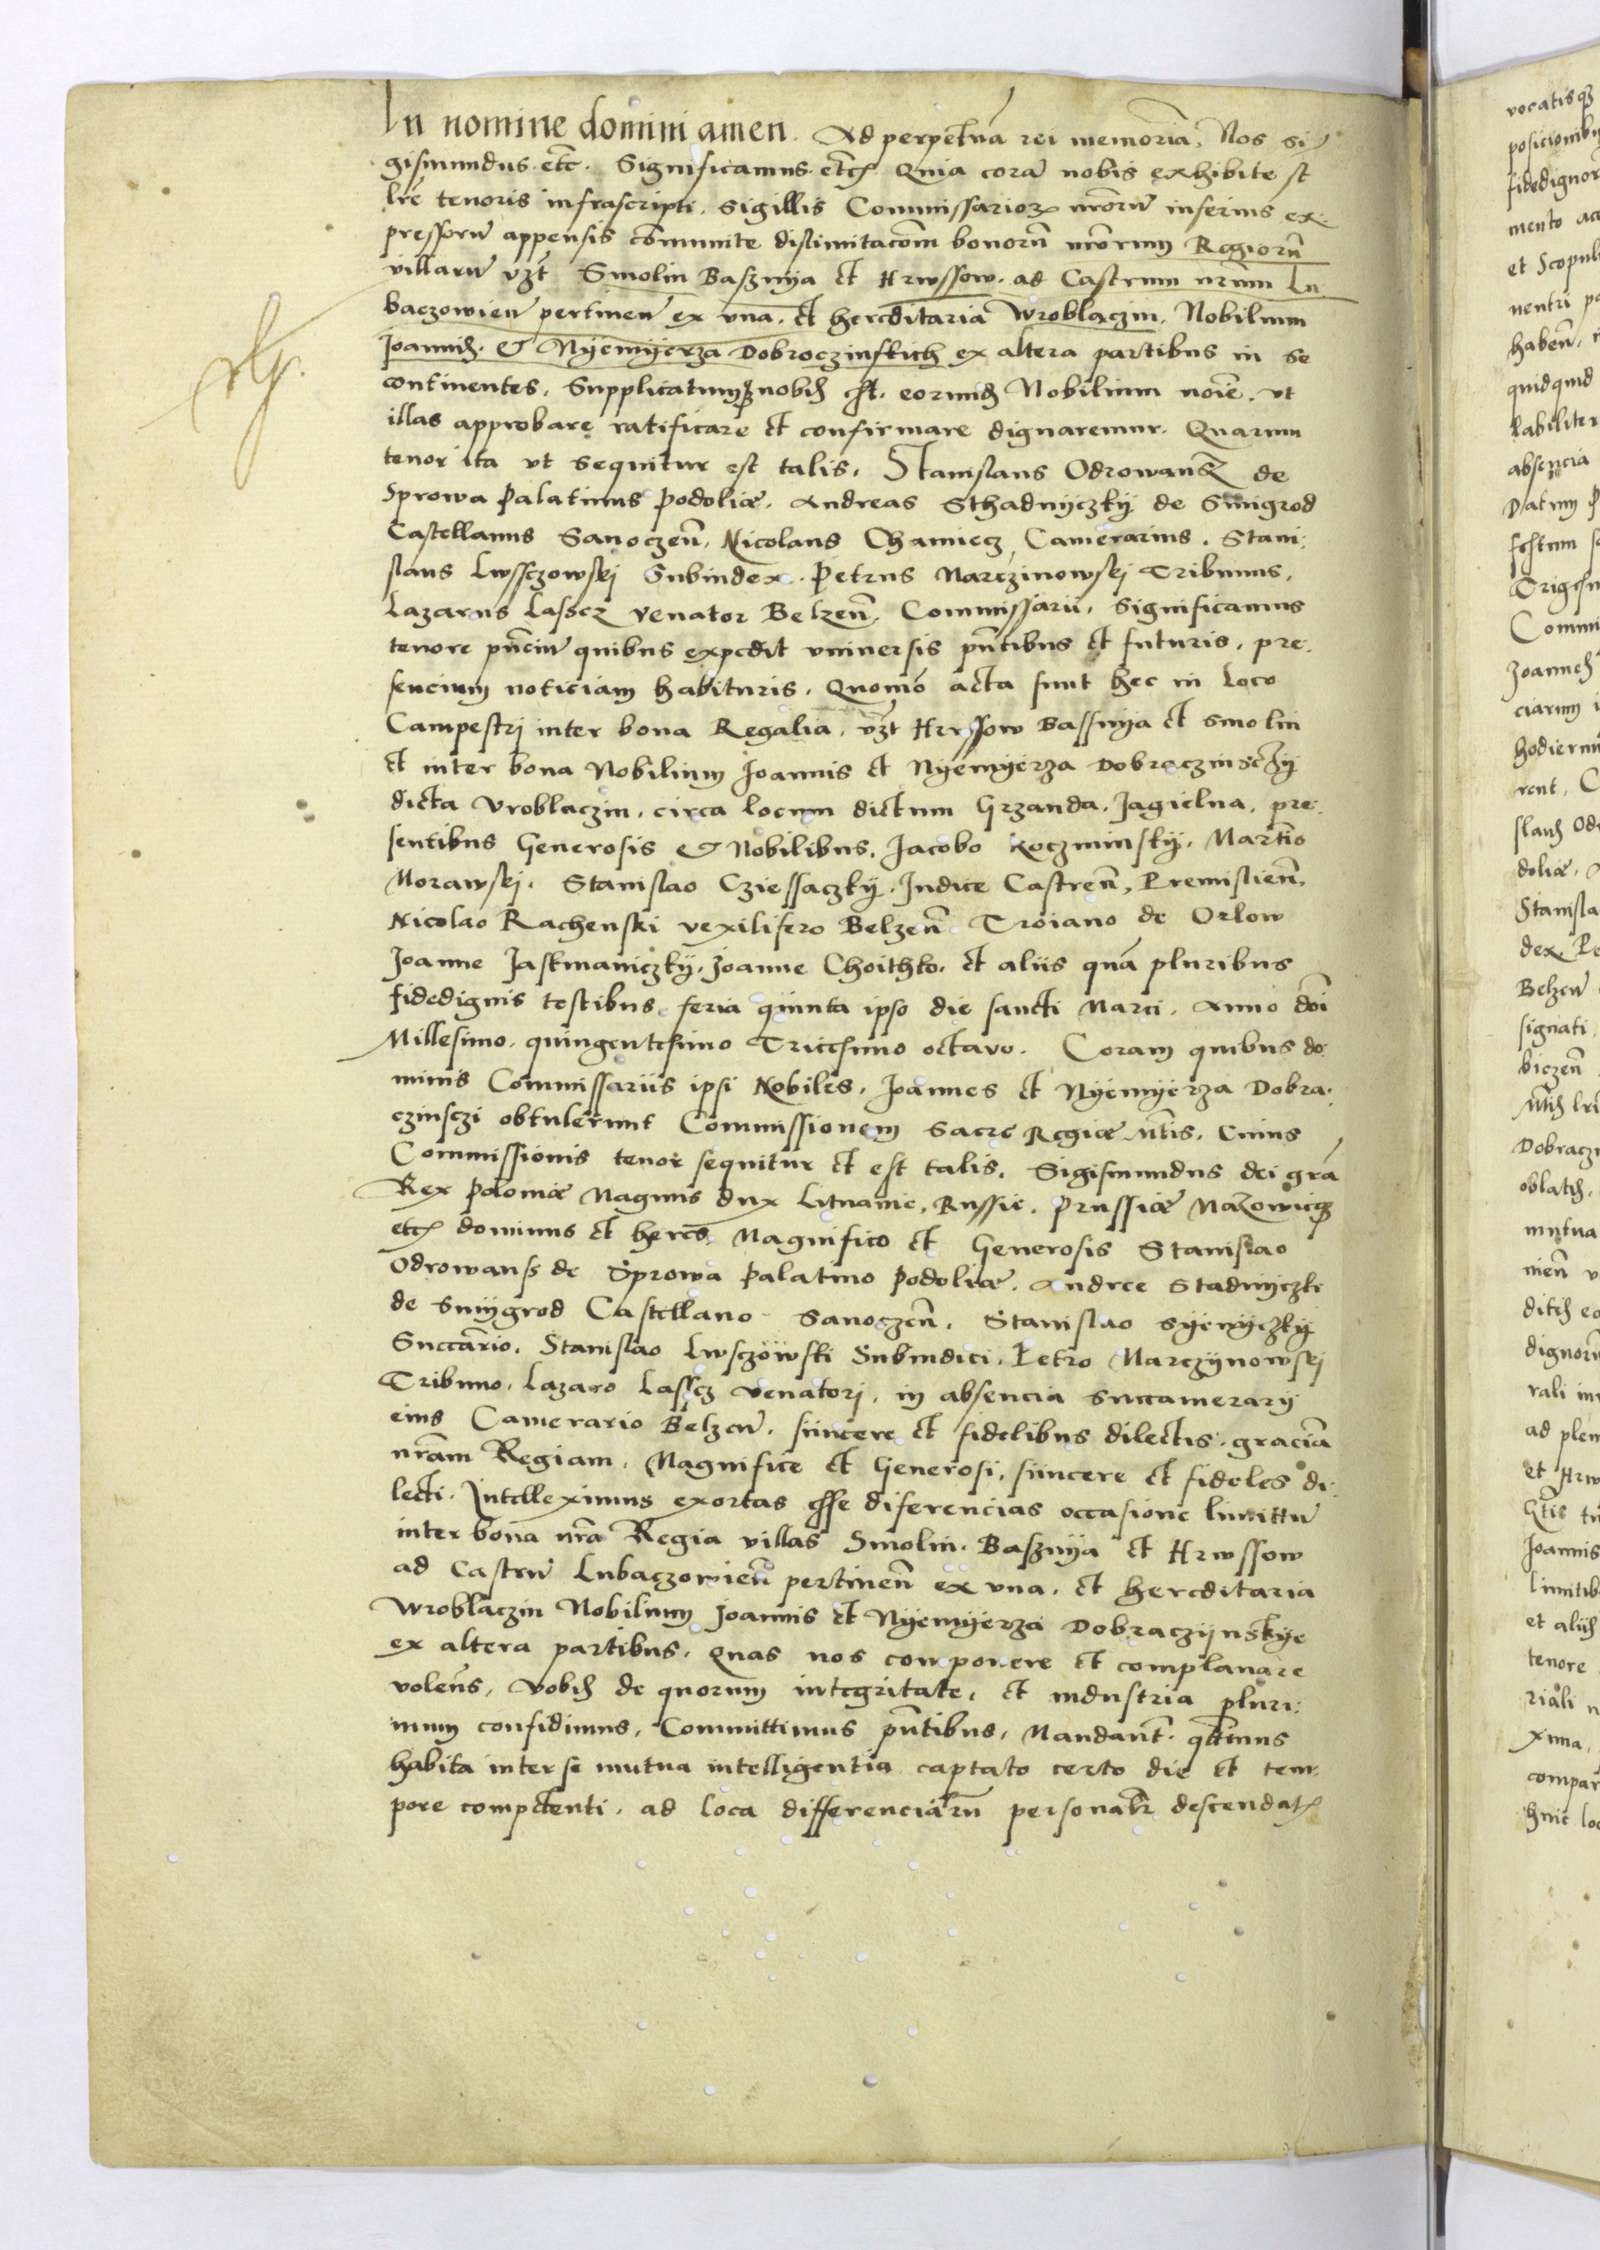 In nomine domini amen. Ad perpetuā rei memoriā, Nos si
gismundus etc̄. Significamus etc̄ Quia corā nobis exhibite st
lr̄e tenoris infrascripti, sigillis Commissarioꝝ nr̄orū inferius ex
pressorū appensis com̄unite dislimitacōm bonorū nr̄orum Regiorū
villarū vꝫt Smolin Basznya et Hrwssow. ad Castrum nr̄um Lu
baczowien̄ pertinen̄ ex vna. et hereditaria Wroblaczin, Nobilium
Joannis. & Nyemyerza Dobroczinskich ex altera partibus in se
continentes, Supplicatumqꝫ nobis est. eorundē Nobilium noīe. vt
illas approbare ratificare et confirmare dignaremur. Quarum
tenor ita vt sequitur est talis, Stanislaus Odrowansz de
Sprowa Palatinus Podoliæ. Andreas Sthadnyczky de Smigrod
Castellanus Sanoczen̄, Nicolaus Chamiecz, Camerarius. Stani
slaus Lwssczowskj Subiudex. Petrus Marczinowskj Tribunus,
Lazarus Lascz venator Belzen̄, Commissarii, significamus
tenore pn̄ciū quibus expedit vniuersis pn̄tibus et futuris, pre
sencium noticiam habituris, Quomō acta sunt hec in loco
Campestrj inter bona Regalia, vꝫt Hrwssow Bassnya et Smolin
et inter bona Nobilium Joannis et Nyemyerza Dobraczinsczy
dicta Vroblaczin, circa locum dictum Grzanda, Jagielna, pre
sentibus Generosis & Nobilibus, Jacobo Koczminsky, Martīo
Morawskj. Stanislao Cziessaczky. Judice Castren̄, Premislien̄,
Nicolao Rachenski vexilifero Belzen̄ Troiano de Orlow
Joanne Jastmaniczky, Joanne Choithko. et aliis quā pluribus
fidedignis testibus, feria quinta ipso die sancti Marci, Anno dn̄i
Millesimo, quingentesimo Tricesimo octauo. Coram quibus do
minis Commissariis ipsi Nobiles, Joannes et Nyemyerza Dobra
czinsczi obtulerunt Commissionem Sacre Regiæ Mt̄is, Cuius
Commissionis tenor sequitur et est talis, Sigismundus dei gr̄a
Rex Poloniæ Magnus dux Lituanie, Russie, Prussiæ Mazowieqꝫ
etc̄ dominus et heres, Magnifico et Generosis Stanislao
Odrowansz de Sprowa Palatino Podoliæ, Andree Stadnyczki
de Smygrod Castellano Sanoczen̄, Stanislao Syenyczky
Succār̄io, Stanislao Lwsczowski Subiudici, Petro Marczynowskj
Tribuno, Lazaro Lassez venatorj, in absencia succamerarij
eius Camerario Belzen̄, sincere et fidelibus dilectis, graciā
nr̄am Regiam, Magnifice et Generosi, sincere et fideles di
lecti. Intelleximus exortas esse diferencias occasione limittū
inter bona nr̄a Regia villas Smolin, Baszniya et Hrwssow
ad Castrū Lubaczowien̄ pertinen̄ ex vna, et hereditaria
Wroblaczin Nobilium Joannis et Nyemyerza Dobraczynskye
ex altera partibus, Quas nos componere et complanare
volen̄s, Vobis de quorum integritate, et industria pluri
mum confidimus, Committimus pn̄tibus, Mandan̄t. qt̄enus
habita inter se mutua intelligentia captato certo die et tem
pore competenti, ad loca differenciarū personalr̄ descendatꝭ